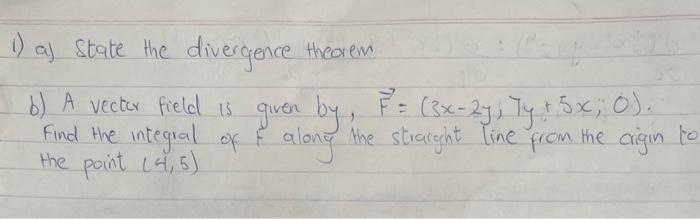 1) a) State the divergence theorem
b) A vector field is given by, F⃗ = (3x-2y, 7y+5x, 0).
Find the integral of F along the straight line from the origin to
the point (4,5)